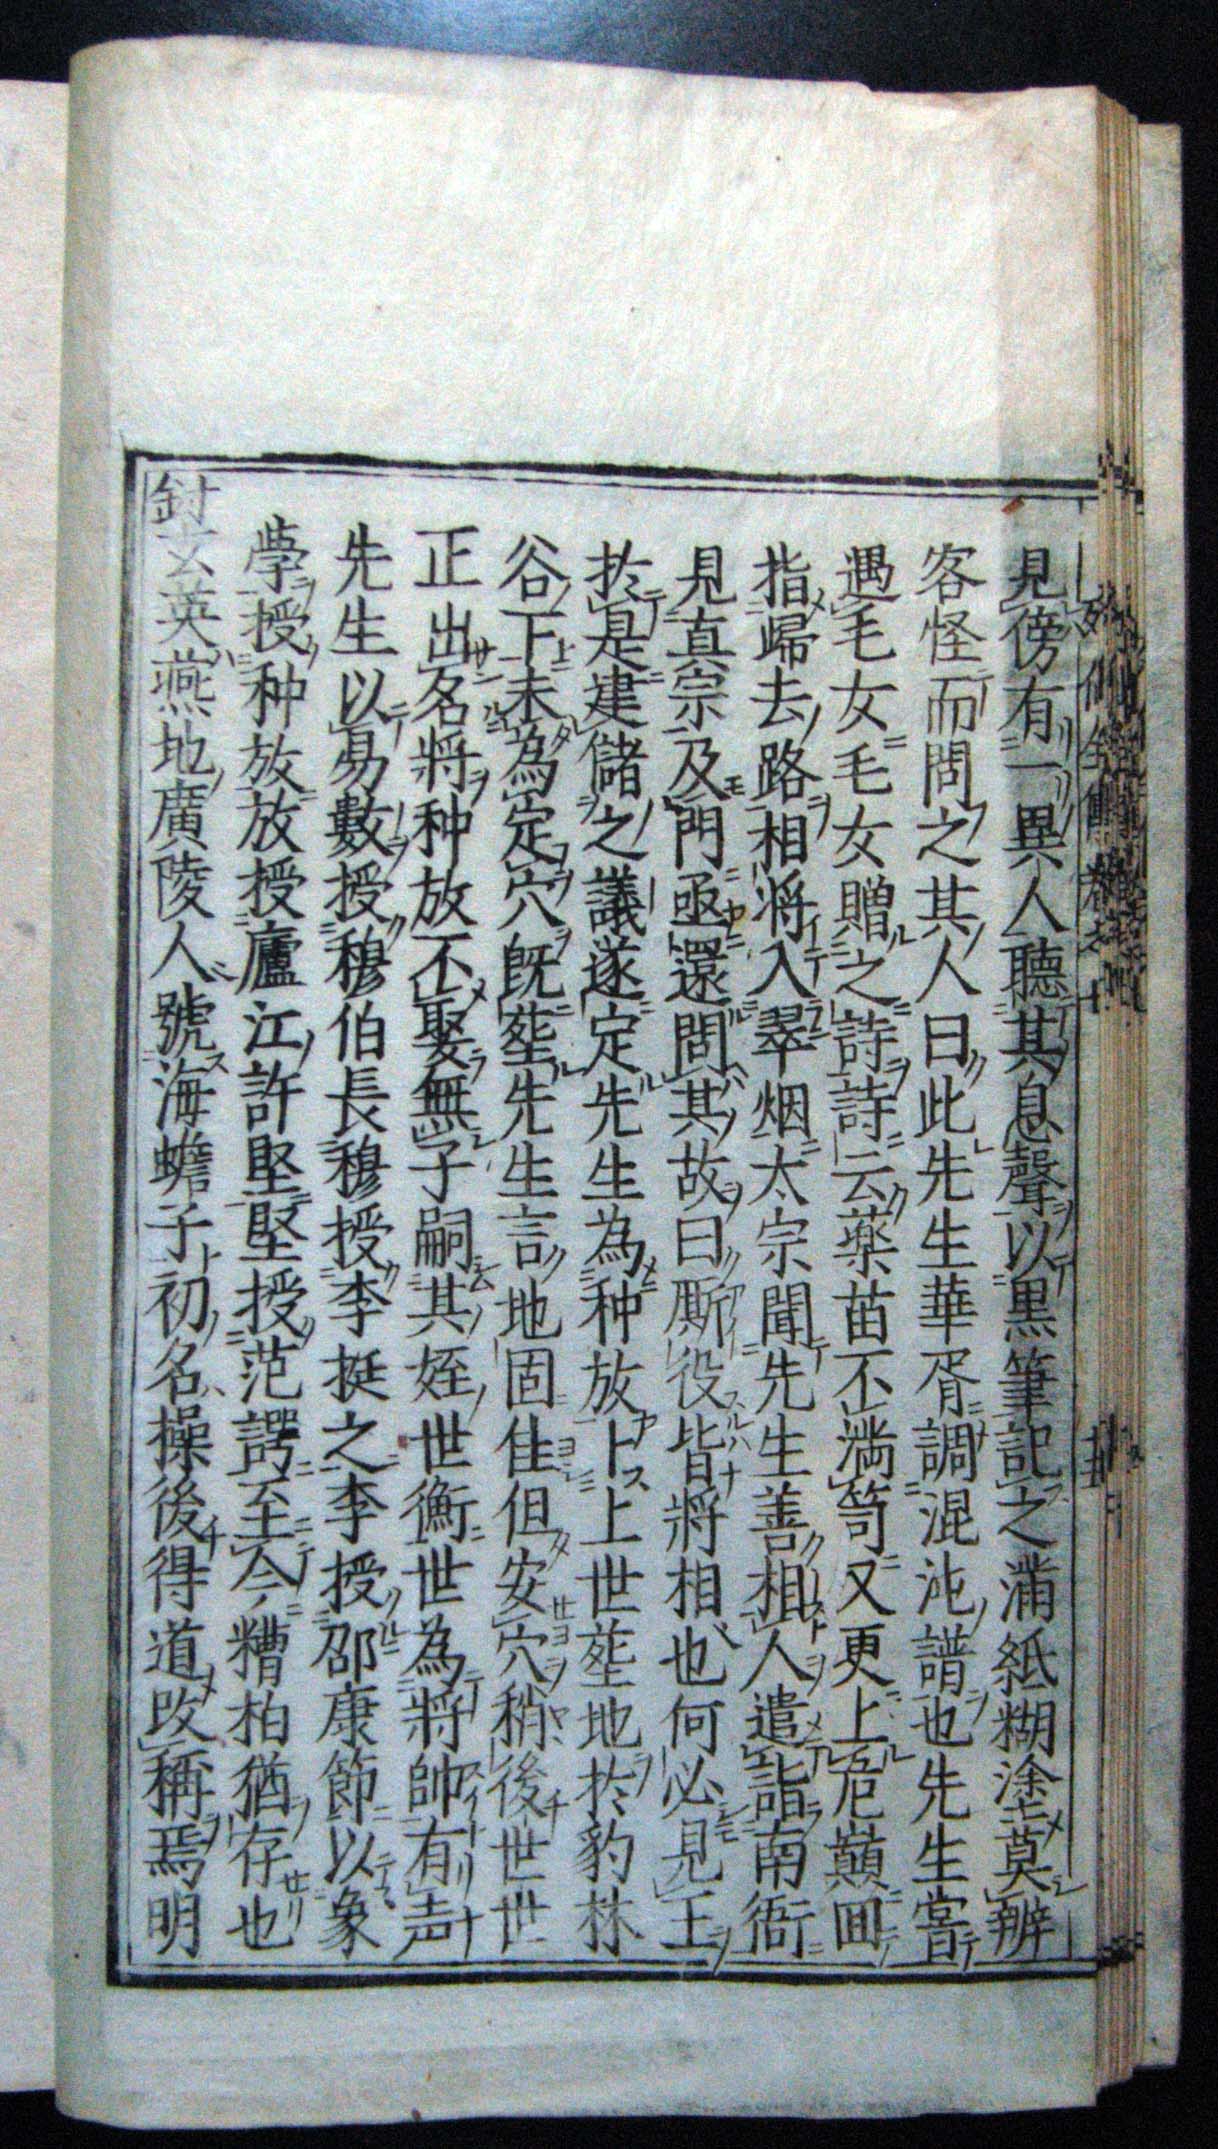 見傍有一異人聽其息聲以黒筆記之滿紙糊塗莫辨
客怪而問之其人曰此先生華胥調混沌譜也先生嘗
遇毛女毛女贈之詩詩云薬苗不満笥又更上危巔囬
指歸去路相将入翠烟太宗聞先生善相人遣詣南衙
見真宗及門亟還問其故曰厮役皆将相也何必見王
扵是建儲之議遂定先生為种放卜上世塟地扵豹林
谷下未為定穴既塟先生言地固佳但安穴稍後世世
正出名將种放不娶無子嗣其姪世衡世為將帥有声
先生以易數授穆伯長穆授李挺之李授邵康節以象
學授种放放授廬江許堅堅授范諤至今糟粕猶存也
劉玄英燕地廣陵人號海蟾子初名操後得道改稱焉明